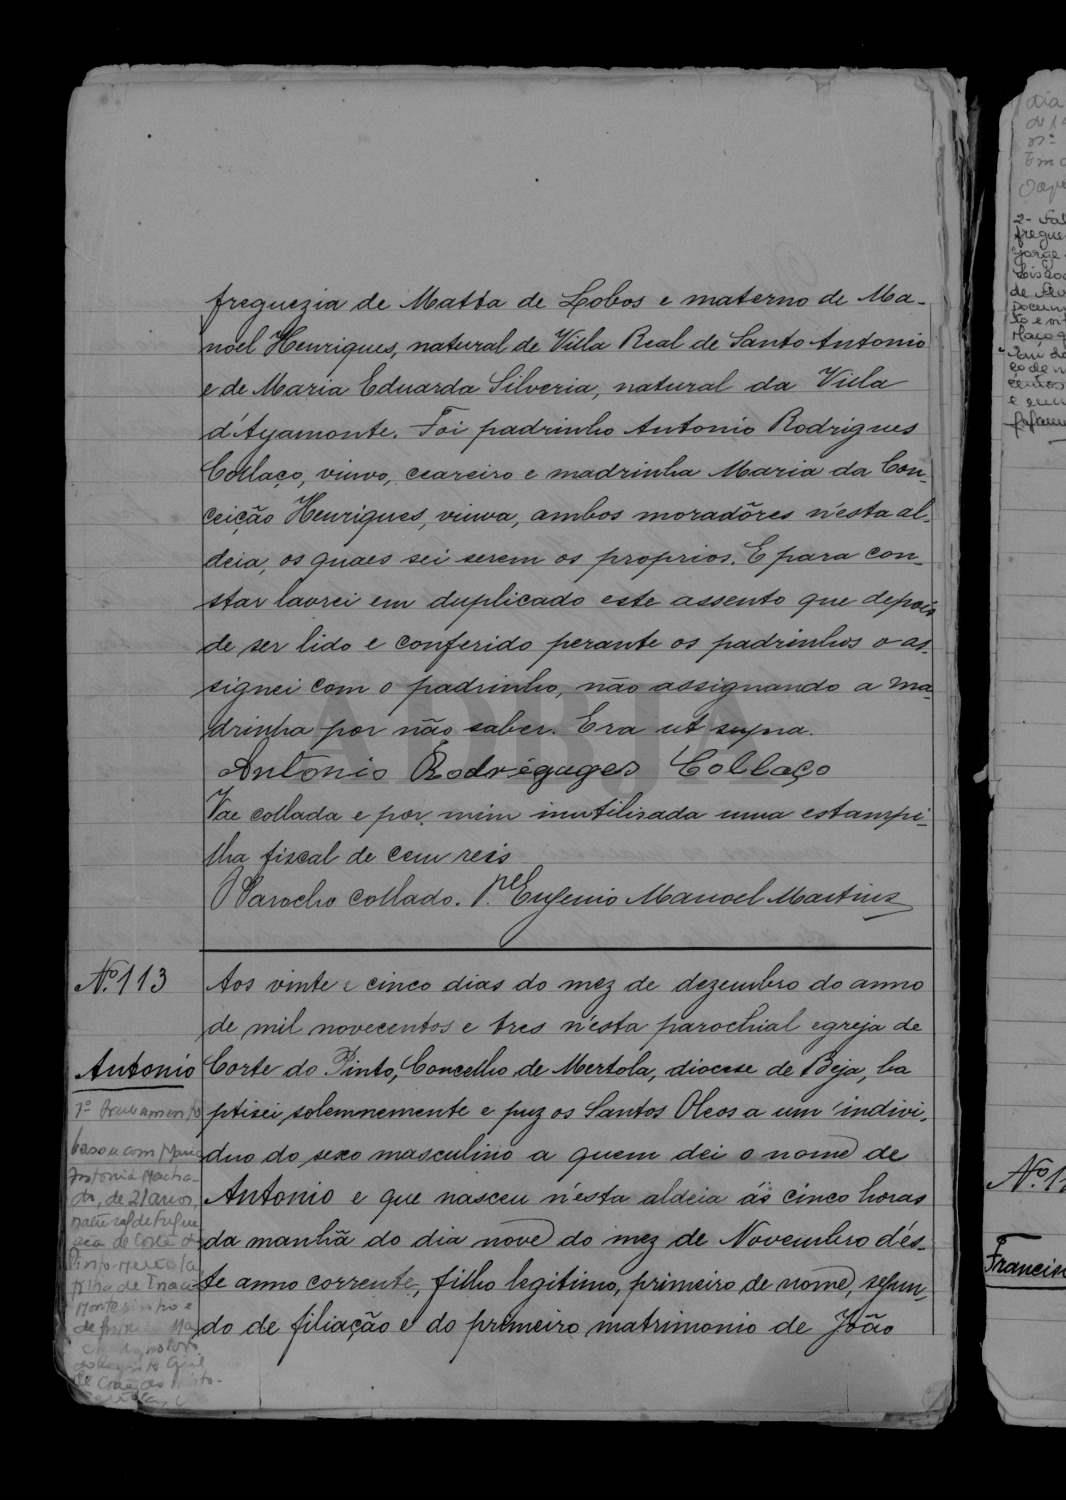 freguezia de Matta de Lobos e materno de Ma-
noel Henriques, natural de Villa Real de Santo Antonio
e de Maria Eduarda Silveria, natural da Villa
d'Ayamonte. Foi padrinho Antonio Rodrigues
Collaço, viuvo, ceareiro e madrinha Maria da Con-
ceição Henriques, viuva, ambos moradôres n'esta al-
deia, os quaes sei serem os proprios. E para con-
star lavrei em duplicado este assento que depois
de ser lido e conferido perante os padrinhos o as-
signei com o padrinho, não assignando a ma-
drinha por não saber. Era ut supra.
Antonio Rodréguges Collaço
Vae collada e por mim inutilisada uma estampi-
lha fiscal de cem reis
O Parocho collado. Pe Eugenio Manoel Martins
ADBJA
Nº 113
Antonio
Aos vinte e cinco dias do mez de dezembro do anno
de mil novecentos e tres n'esta parochial egreja de
Corte do Pinto, Concelho de Mertola, diocese de Beja, ba
ptisei solemnemente e puz os Santos Oleos a um indivi-
duo do sexo masculino a quem dei o nome de
Antonio e que nasceu n'esta aldeia ás cinco horas
da manhã do dia nove do mez de Novembro d'és-
te anno corrente, filho legitimo, primeiro de nome, segun-
do de filiação e do primeiro matrimonio de João
1º
Casou com Maria
Antonia Macha-
do, de 21 anos,
natural de Fregue
sia de Corte do
Pinto Mertola
filha de
e
de
Civil
de Corte do Pinto-
dia
de
nº
Em
2-
fregue
Jorge
Lisboa
de
Docum
to e vi
Maço
e
Nº 1
Francisc